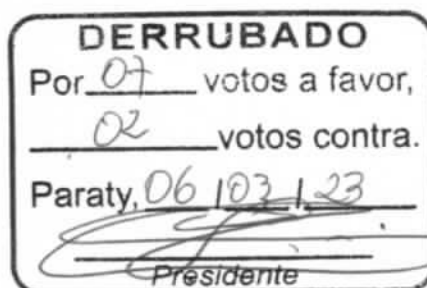 DERRUBADO
Por 07 votos a favor,
02 votos contra.
Paraty, 06 / 03 / 23
Presidente